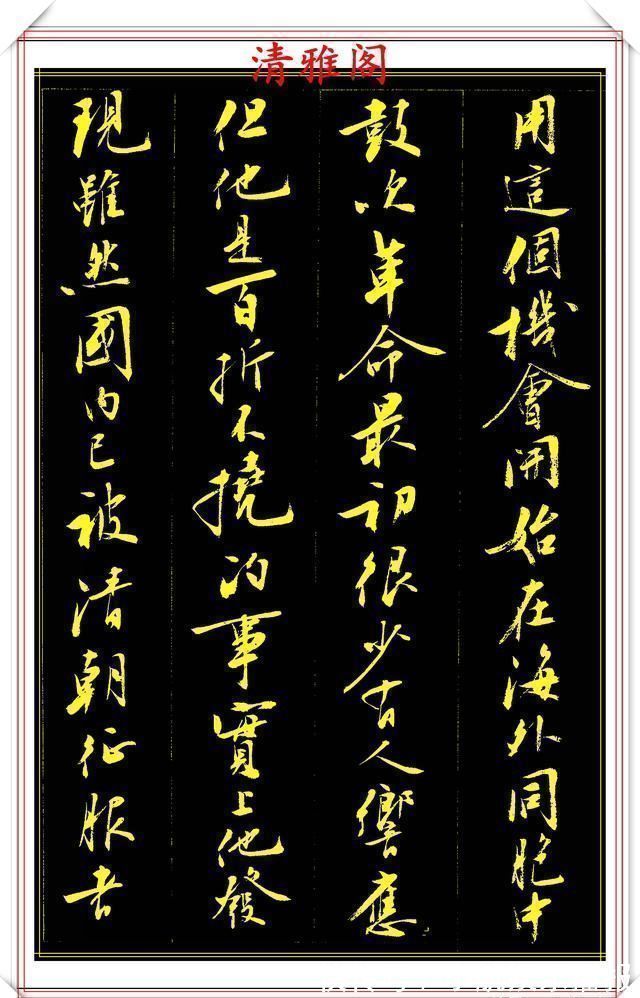 清雅阁
用這個機會開始在海外同胞中
鼓次革命最初很少有人響應
但他是百折不撓的事實上他發
現雖然國內已被清朝征服者